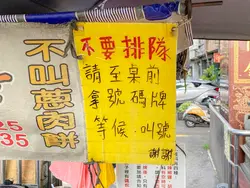 不要排隊
請至桌前
拿號碼牌
等候．叫號
謝謝
不叫蔥肉餅
25
35